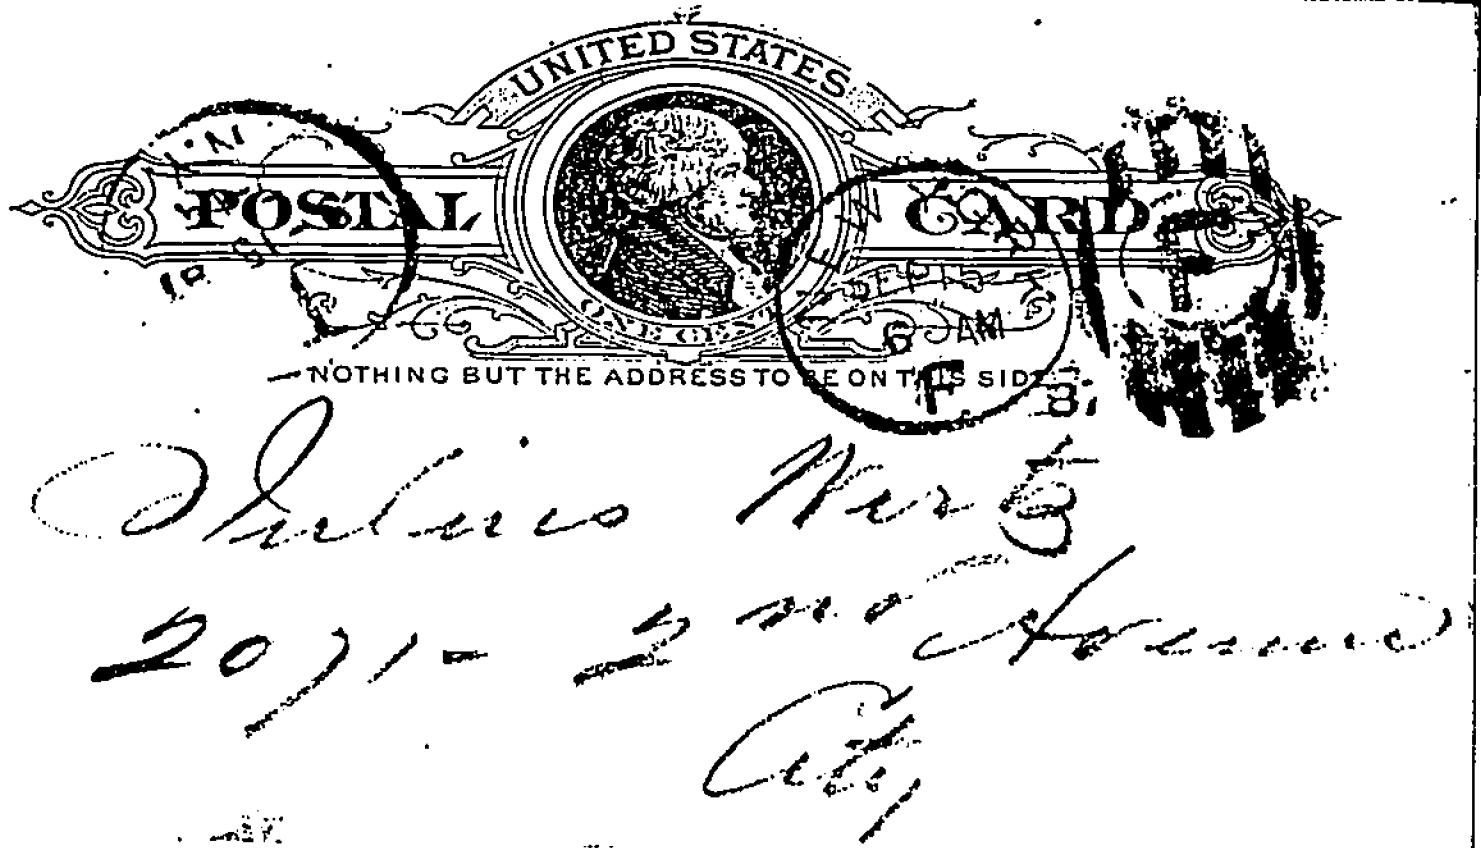 UNITED STATES
POSTAL CARD
ONE CENT
NOTHING BUT THE ADDRESS TO BE ON THIS SIDE.
SEP 15
6 AM
F
Julius Wertz
2071 - 2nd Avenue
City